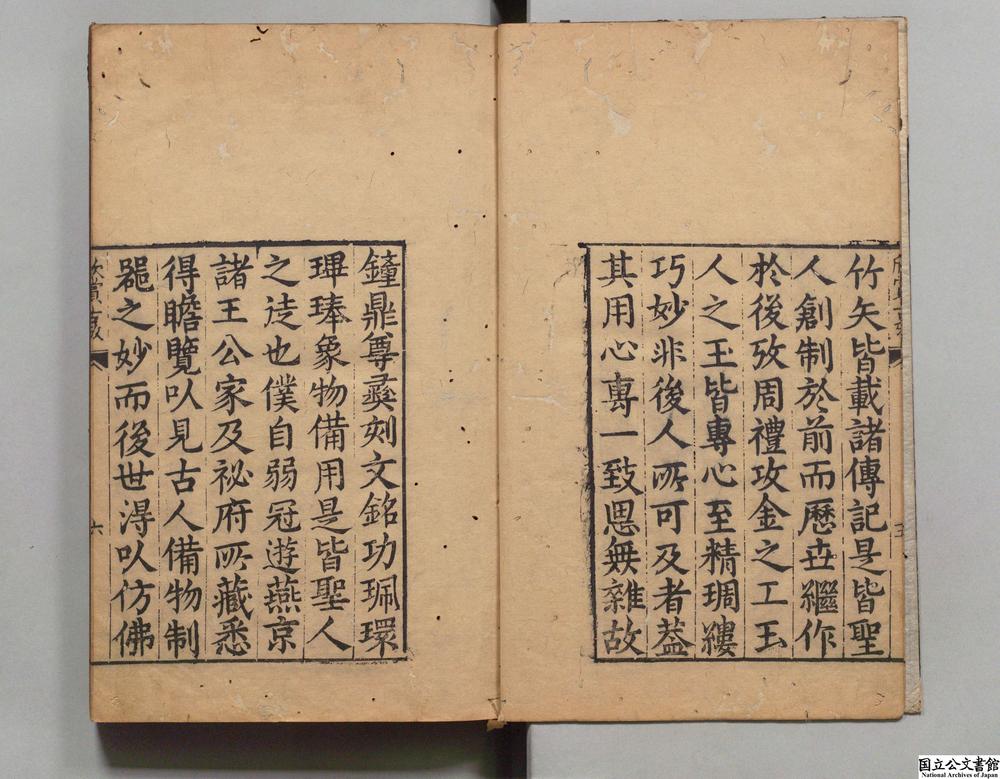 竹矢皆載諸傳記是皆聖
人創制於前而歷世繼作
於後攷周禮攻金之工玉
人之玉皆專心至精琱鏤
巧妙非後人所可及者葢
其用心專一致思無雜故
鐘鼎尊彝刻文銘功珮環
琕琫象物備用是皆聖人
之迹也僕自弱冠遊燕京
諸王公家及祕府所藏悉
得瞻覽以見古人備物制
噐之妙而後世得以仿佛
六
国立公文書館
National Archives of Japan